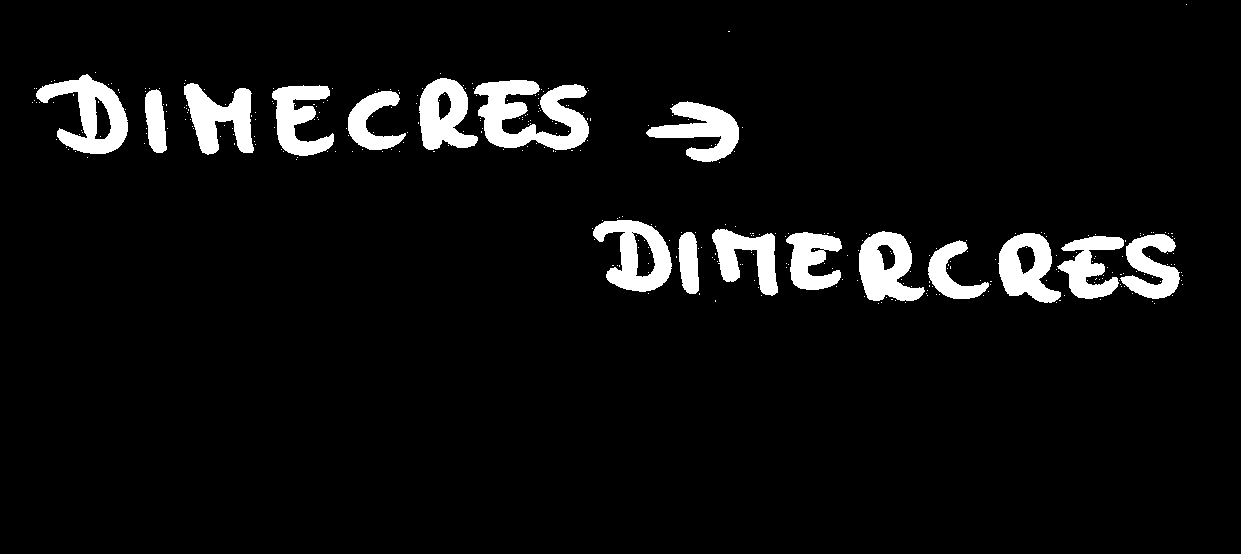 DIMECRES →
DIMERCRES